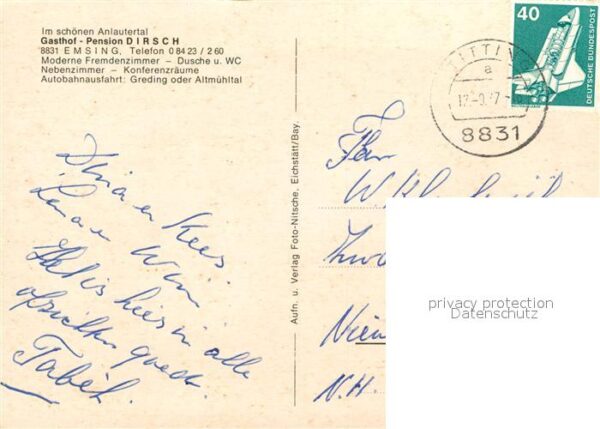 Im schönen Anlautertal
Gasthof - Pension DIRSCH
8831 EMSING, Telefon 0 84 23 / 2 60
Moderne Fremdenzimmer – Dusche u. WC
Nebenzimmer – Konferenzräume
Autobahnausfahrt: Greding oder Altmühltal
40
DEUTSCHE BUNDESPOST
TITTING
a
8831
Aufn. u. Verlag Foto-Nitsche, Eichstätt/Bay.
Kees
Wim
Het is hier in alle
opzichten goed.
Tabéh.
Fam
N.H.
privacy protection
Datenschutz